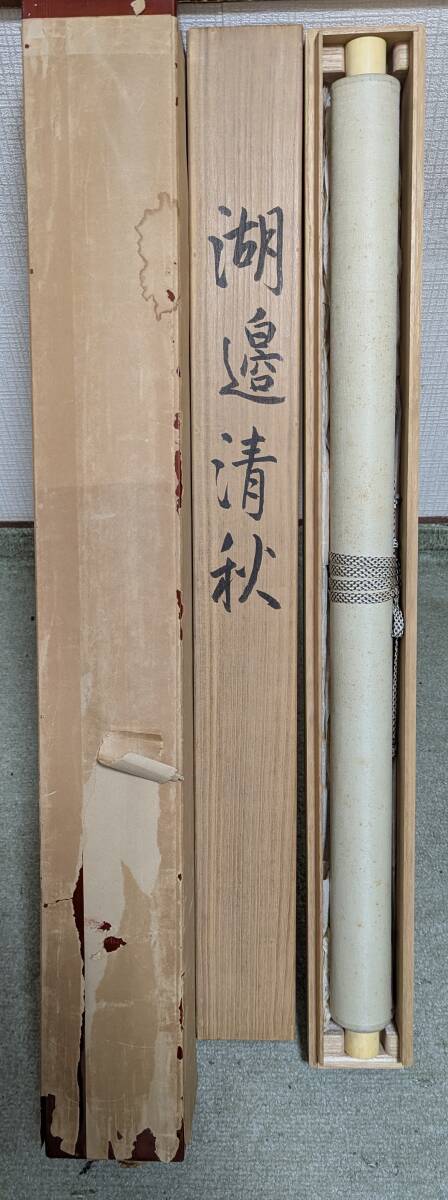 湖邉清秋